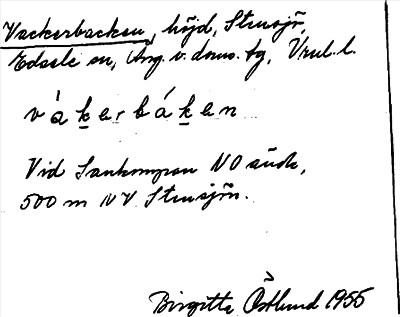 Vackerbacken, höjd, Stensjö,
Edsele sn, Ång. v. doms. tg, Vnrl. l.
vàkerbákan
Vid Sankmyren NO sūde,
500 m NV Stensjön.
Birgitta Östlund 1955